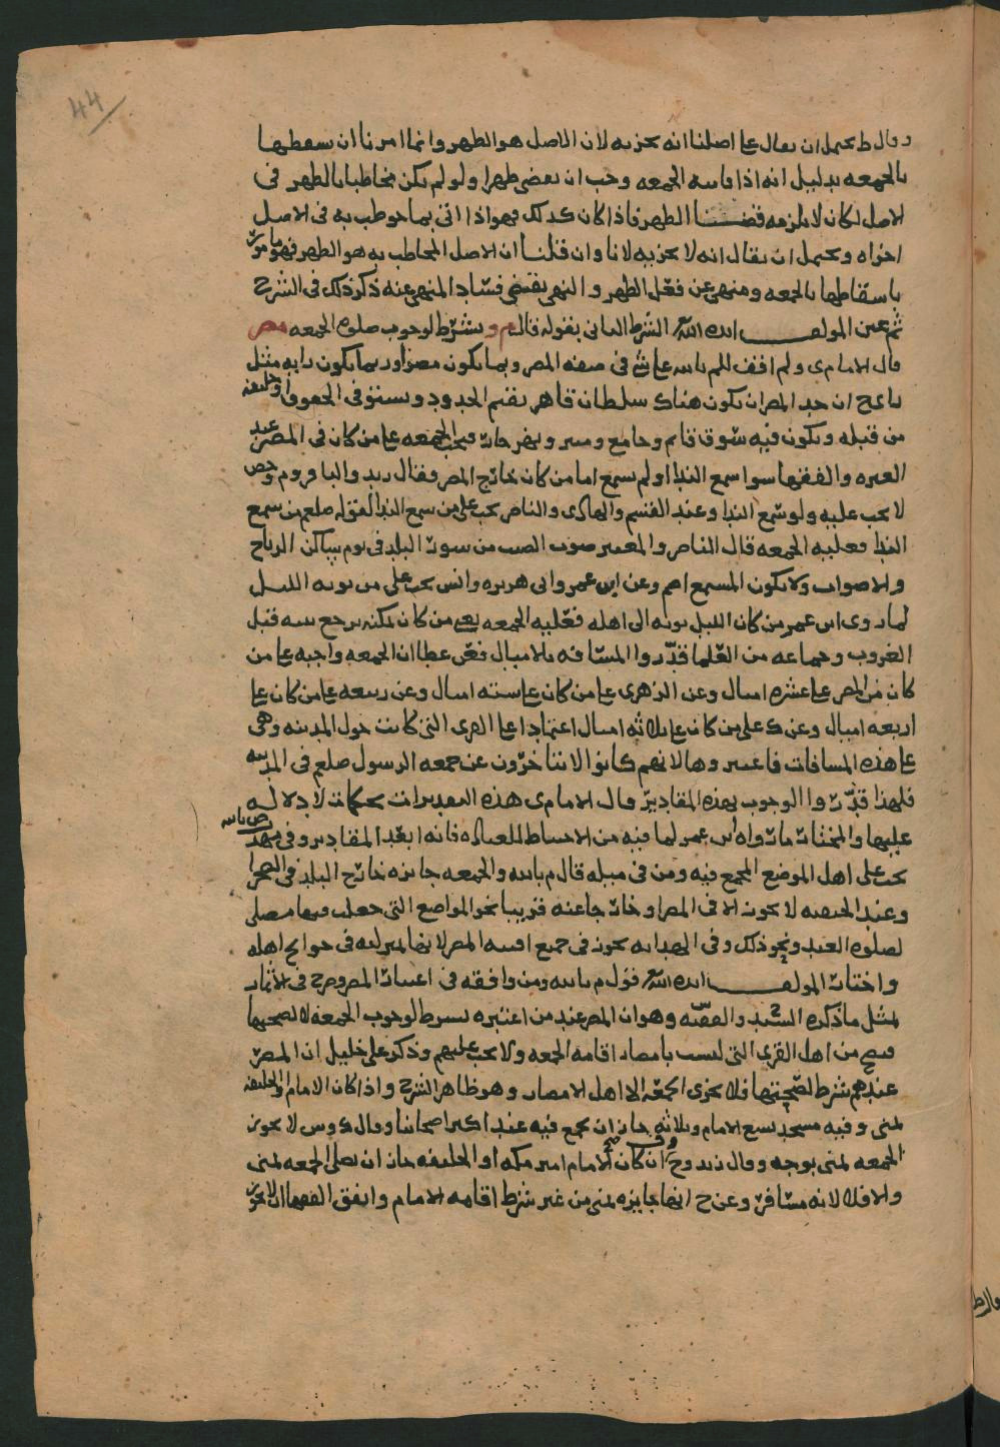 44
وقال ط يحتمل ان يقال على اصلنا انه يجزيه لان الاصل هو الظهر وانما امرنا ان نسقطها
بالجمعه بدليل انه اذا فاتته الجمعه وجب ان يقضي ظهرا ولو لم يكن مخاطبا بالظهر في
الاصل لكان لا يلزمه قضــا الظهر فاذا كان كذلك فهو اذا اتى بما خوطب به في الاصل
اجزاه ويحتمل ان يقال انه لا يجزيه لانا وان قلنا ان الاصل المخاطب به هو الظهر فهو مامور
باسقاطها بالجمعه ومنهي عن فعل الظهر والنهي يقتضي فساد المنهي عنه ذكر ذلك في الشرح
ثم عين المولف ايده الله الشرط الثاني بقوله قال م ويشترط لوجوب صلوه الجمعه مصر
قال الامام ى ولم اقف للم بالله على شي في صفه المصر وبما يكون مصرا وربما يكون رايه مثل
راي ح ان حد المصر ان يكون هناك سلطان قاهر يقيم الحدود ويستوفي الحقوق او خليفه
من قبله ويكون فيه سوق قايم وجامع ومنبر ونهر جار فتجب الجمعه على من كان في المصر عند
العتره والفقها سوا سمع الندا او لم يسمع اما من كان خارج المصر فقال زيد والباقر وم وحص
لا يجب عليه ولو سمع الندا وعند القسم والهادى والناصر يجب على من سمع الندا لقوله صلعم من سمع
الندا فعليه الجمعه قال الناصر والمعتبر صوت الصيت من سور البلد في يوم ساكن الرياح
والاصوات ولا يكون المستمع اصم وعن ابن عمر وابي هريره وانس يجب على من يويه الليل
لما روى ابن عمر من كان الليل يويه الى اهله فعليه الجمعه يعني من كان يمكنه يرجع بيته قبل
الغروب وجماعه من العلما قدروا المسافه بالاميال فعن عطا ان الجمعه واجبه على من
كان من المصر على عشره اميال وعن الزهرى على من كان على سته اميال وعن ربيعه على من كان على
اربعه اميال وعن ك على من كان على ثلاثه اميال اعتمادا على القرى التي كانت حول المدينه وهي
على هذه المسافات فاعتبروها لانهم كانوا لا يتاخرون عن جمعه الرسول صلعم في المدينه
فلهذا قدروا الوجوب بهذه المقادير قال الامام ى هذه التقديرات تحكمات لا دلاله
عليها والمختار ما رواه ابن عمر لما فيه من الاحتياط للعباده فانه ابعد المقادير وفي
يجب على اهل الموضع المجمع فيه ومن في ميله قال م بالله والجمعه جايزه خارج البلد في الصحرا
وعند الحنفيه لا يجوز الا في المصر او خارجا عنه قريبا نحو المواضع التي جعلت فيها مصلى
لصلوه العيد ونحو ذلك وفي الهدايه يجوز في جميع افنيه المصر لانها بمنزلته في حوايج اهله
واختار المولف ايده الله قول م بالله ومن وافقه في اعتبار المصر وصرح في الاثمار
بمثل ما ذكره السيد والفقيه وهو ان المصر عند من اعتبره يشرط لوجوب الجمعه لا لصحتها
فيصح من اهل القرى التي ليست بامصار اقامه الجمعه ولا يجب عليهم وذكر على خليل ان المصر
عندهم شرط لصحتها فلا يجزي الجمعه الا اهل الامصار وهو ظاهر الشرح واذا كان الامام او الخليفه
بمنى وفيه مسجد يسع الامام وثلاثه جاز ان يجمع فيه عند اكثر اصحابنا وقال ك وس لا يجوز
الجمعه بمنى بوجه وقال زيد وح وف ان كان الامام امير مكه او الخليفه جاز ان يصلي الجمعه بمنى
والا فلا لانه مسافر وعن ح انها جايزه بمنى من غير شرط اقامه الامام واتفق الفقها ان لا يجوز